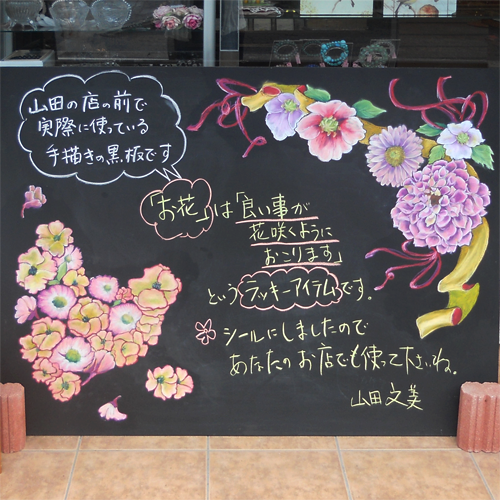 山田の店の前で
実際に使っている
手描きの黒板です
「お花」は「良い事が
花咲くように
おこります」
というラッキーアイテムです。
シールにしましたので
あなたのお店でも使って下さいね。
山田文美